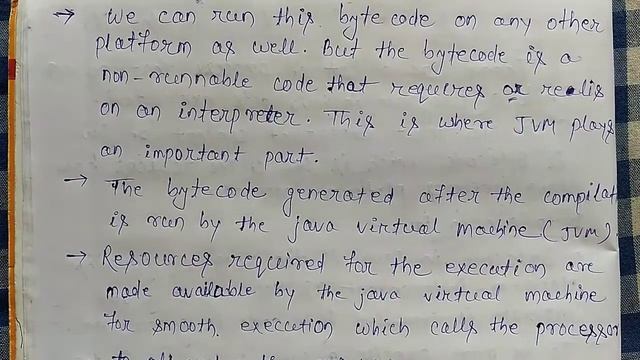 → We can run this bytecode on any other
platform as well. But the bytecode is a
non-runnable code that requires or realis
on an interpreter. This is where JVM plays
an important part.
→ The bytecode generated after the compilat
is run by the java virtual machine (JVM)
→ Resources required for the execution are
made available by the java virtual machine
for smooth execution which calls the processor
to